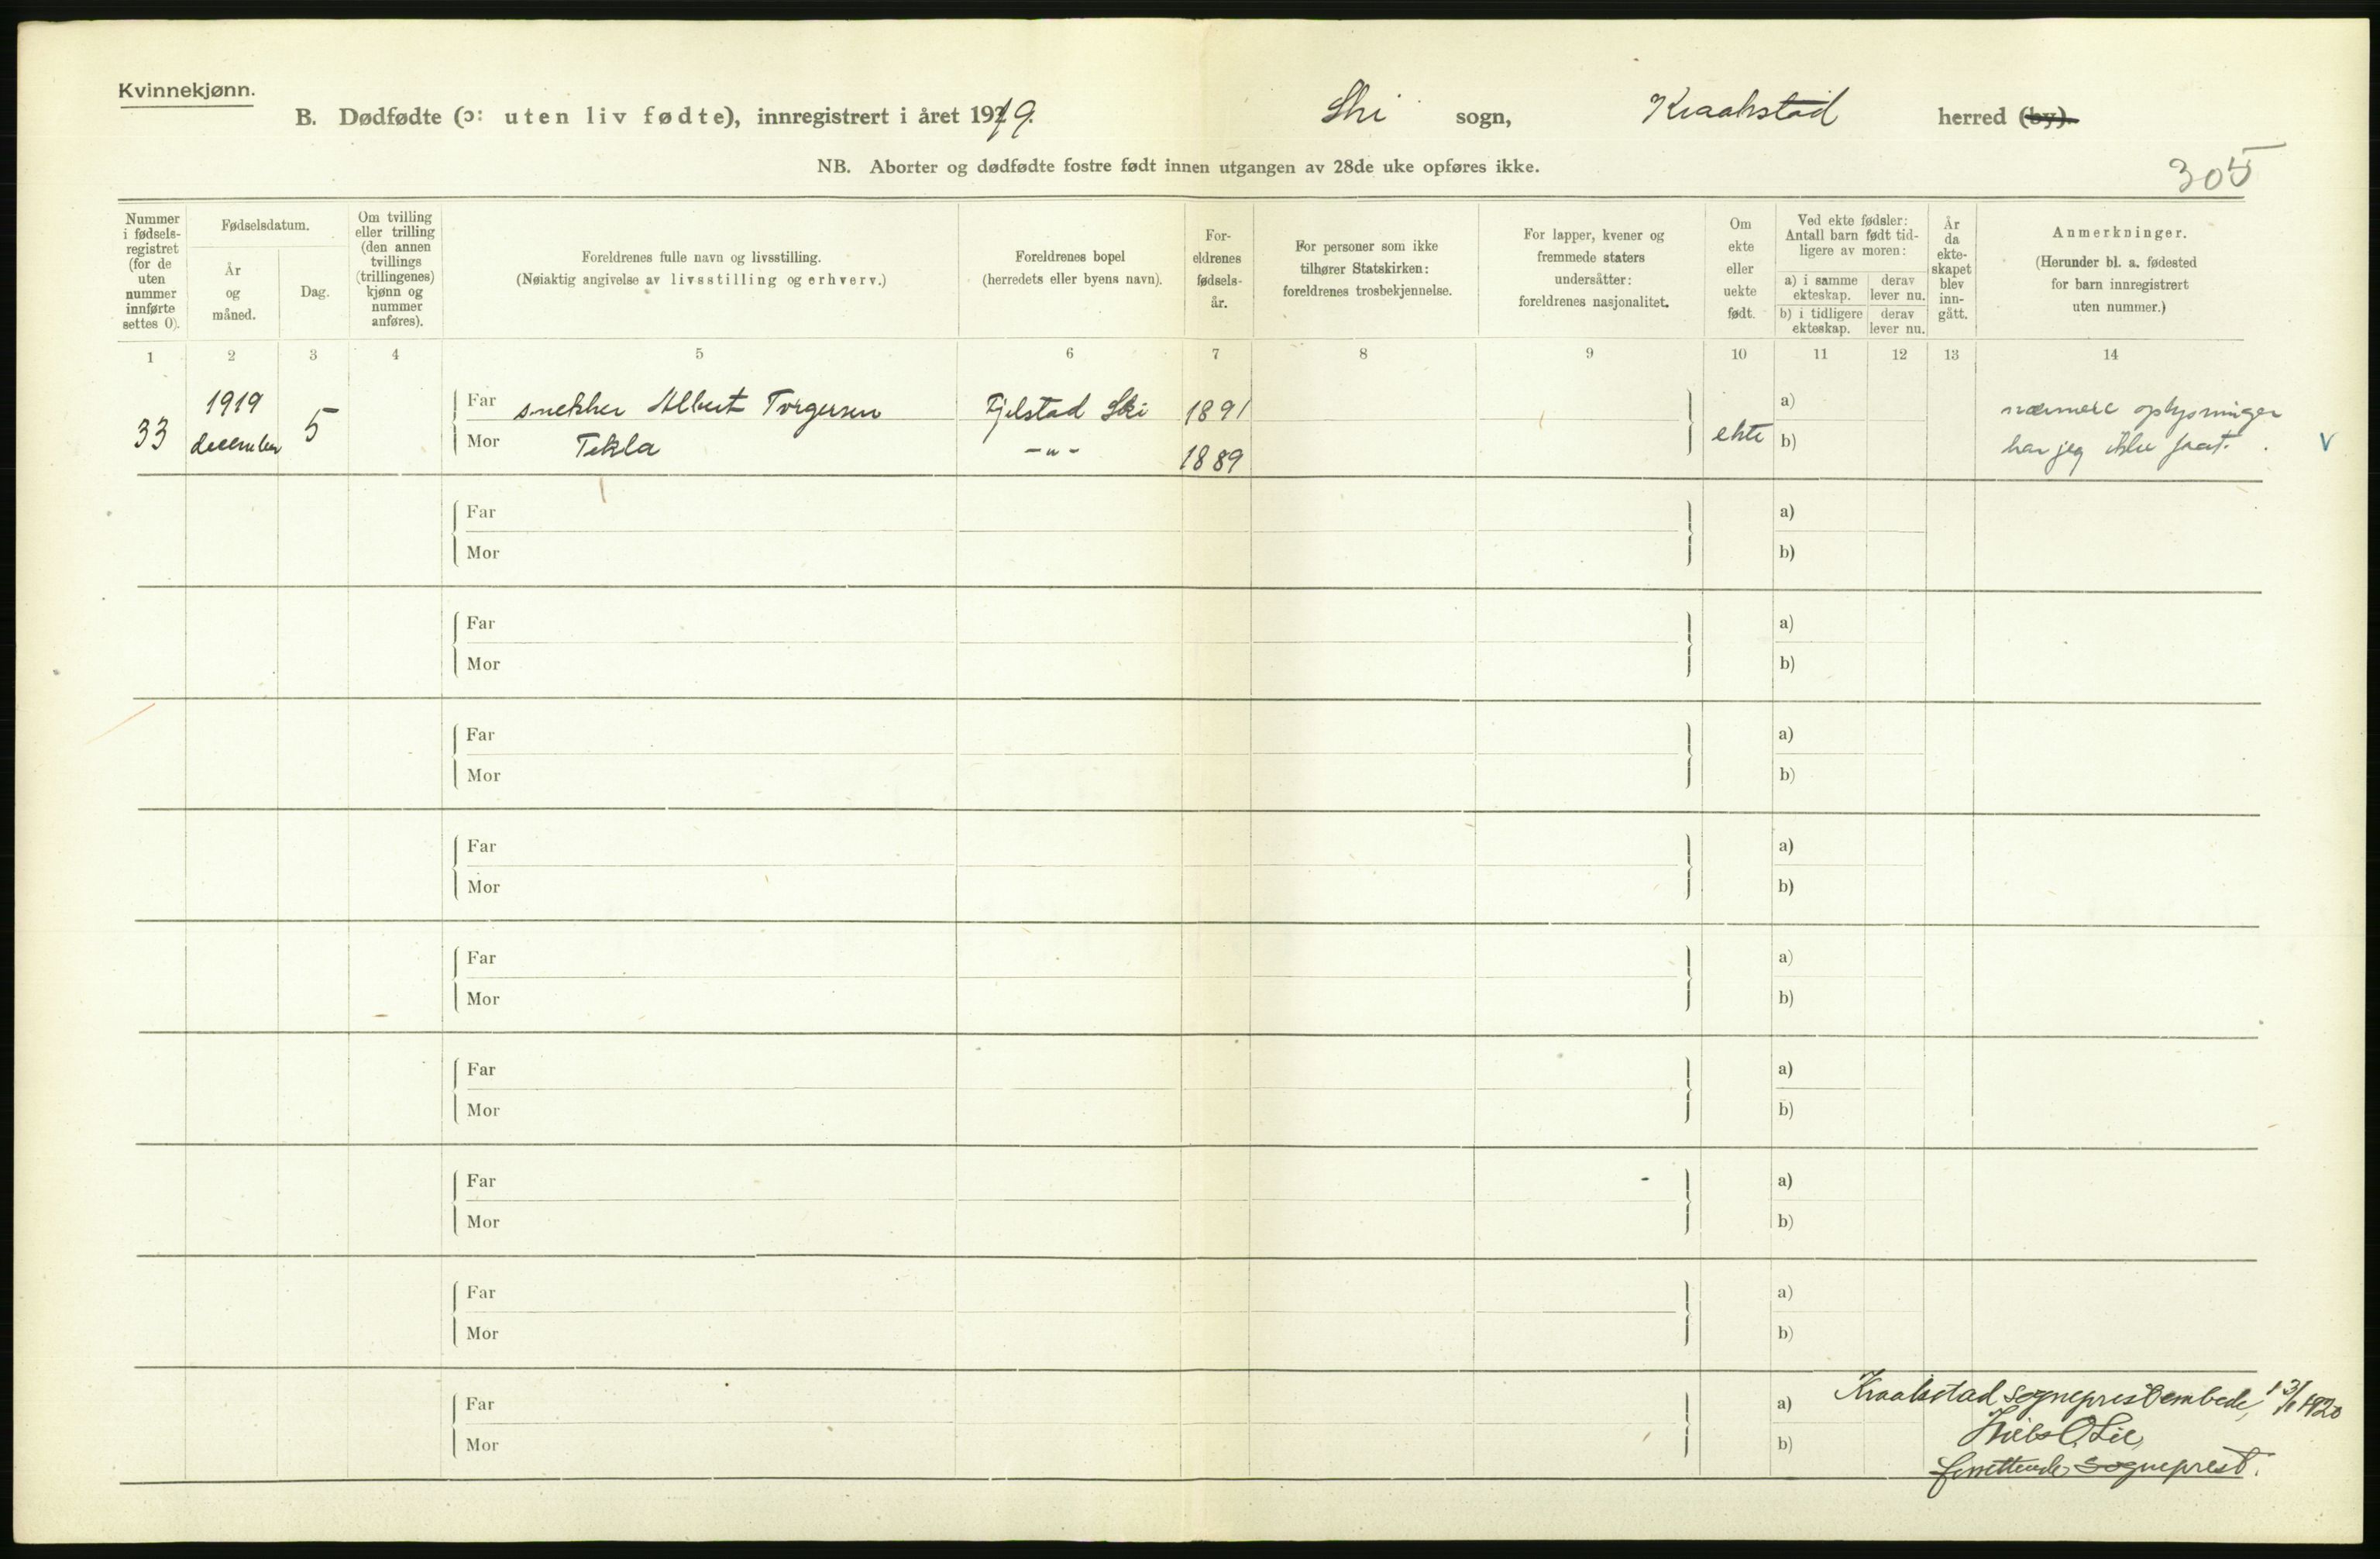 Kvinnekjønn.
B. Dødfødte (ɔ: uten liv fødte), innregistrert i året 1919. Ski sogn, Kraakstad herred (by).
NB. Aborter og dødfødte fostre født innen utgangen av 28de uke opføres ikke.
305
Nummer
i fødsels-
registret
(for de
uten
nummer
innførte
settes 0).
Fødselsdatum.
År
og
måned.
Dag.
Om tvilling
eller trilling
(den annen
tvillings
(trillingenes)
kjønn og
nummer
anføres).
Foreldrenes fulle navn og livsstilling.
(Nøiaktig angivelse av livsstilling og erhverv.)
Foreldrenes bopel
(herredets eller byens navn).
For-
eldrenes
fødsels-
år.
For personer som ikke
tilhører Statskirken:
foreldrenes trosbekjennelse.
For lapper, kvener og
fremmede staters
undersåtter:
foreldrenes nasjonalitet.
Om
ekte
eller
uekte
født.
Ved ekte fødsler:
Antall barn født tid-
ligere av moren:
a) i samme
ekteskap.
derav
lever nu.
b) i tidligere
ekteskap.
derav
lever nu.
År
da
ekte-
skapet
blev
inn-
gått.
Anmerkninger.
(Herunder bl. a. fødested
for barn innregistrert
uten nummer.)
1 2 3 4 5 6 7 8 9 10 11 12 13 14
33
1919
december
5
Far snekker Albert Torgersen Fjelstad Ski 1891
Mor Tekla -"- 1889
ekte
a)
b)
nærmere oplysninger
har jeg ikke faat.
V
Far a)
Mor b)
Far a)
Mor b)
Far a)
Mor b)
Far a)
Mor b)
Far a)
Mor b)
Far a)
Mor b)
Far a)
Mor b)
Far a)
Mor b)
Far a)
Mor b)
Kraakstad sogneprestembede, 13/1 1920
Niels O Lie
forrettende sogneprest.